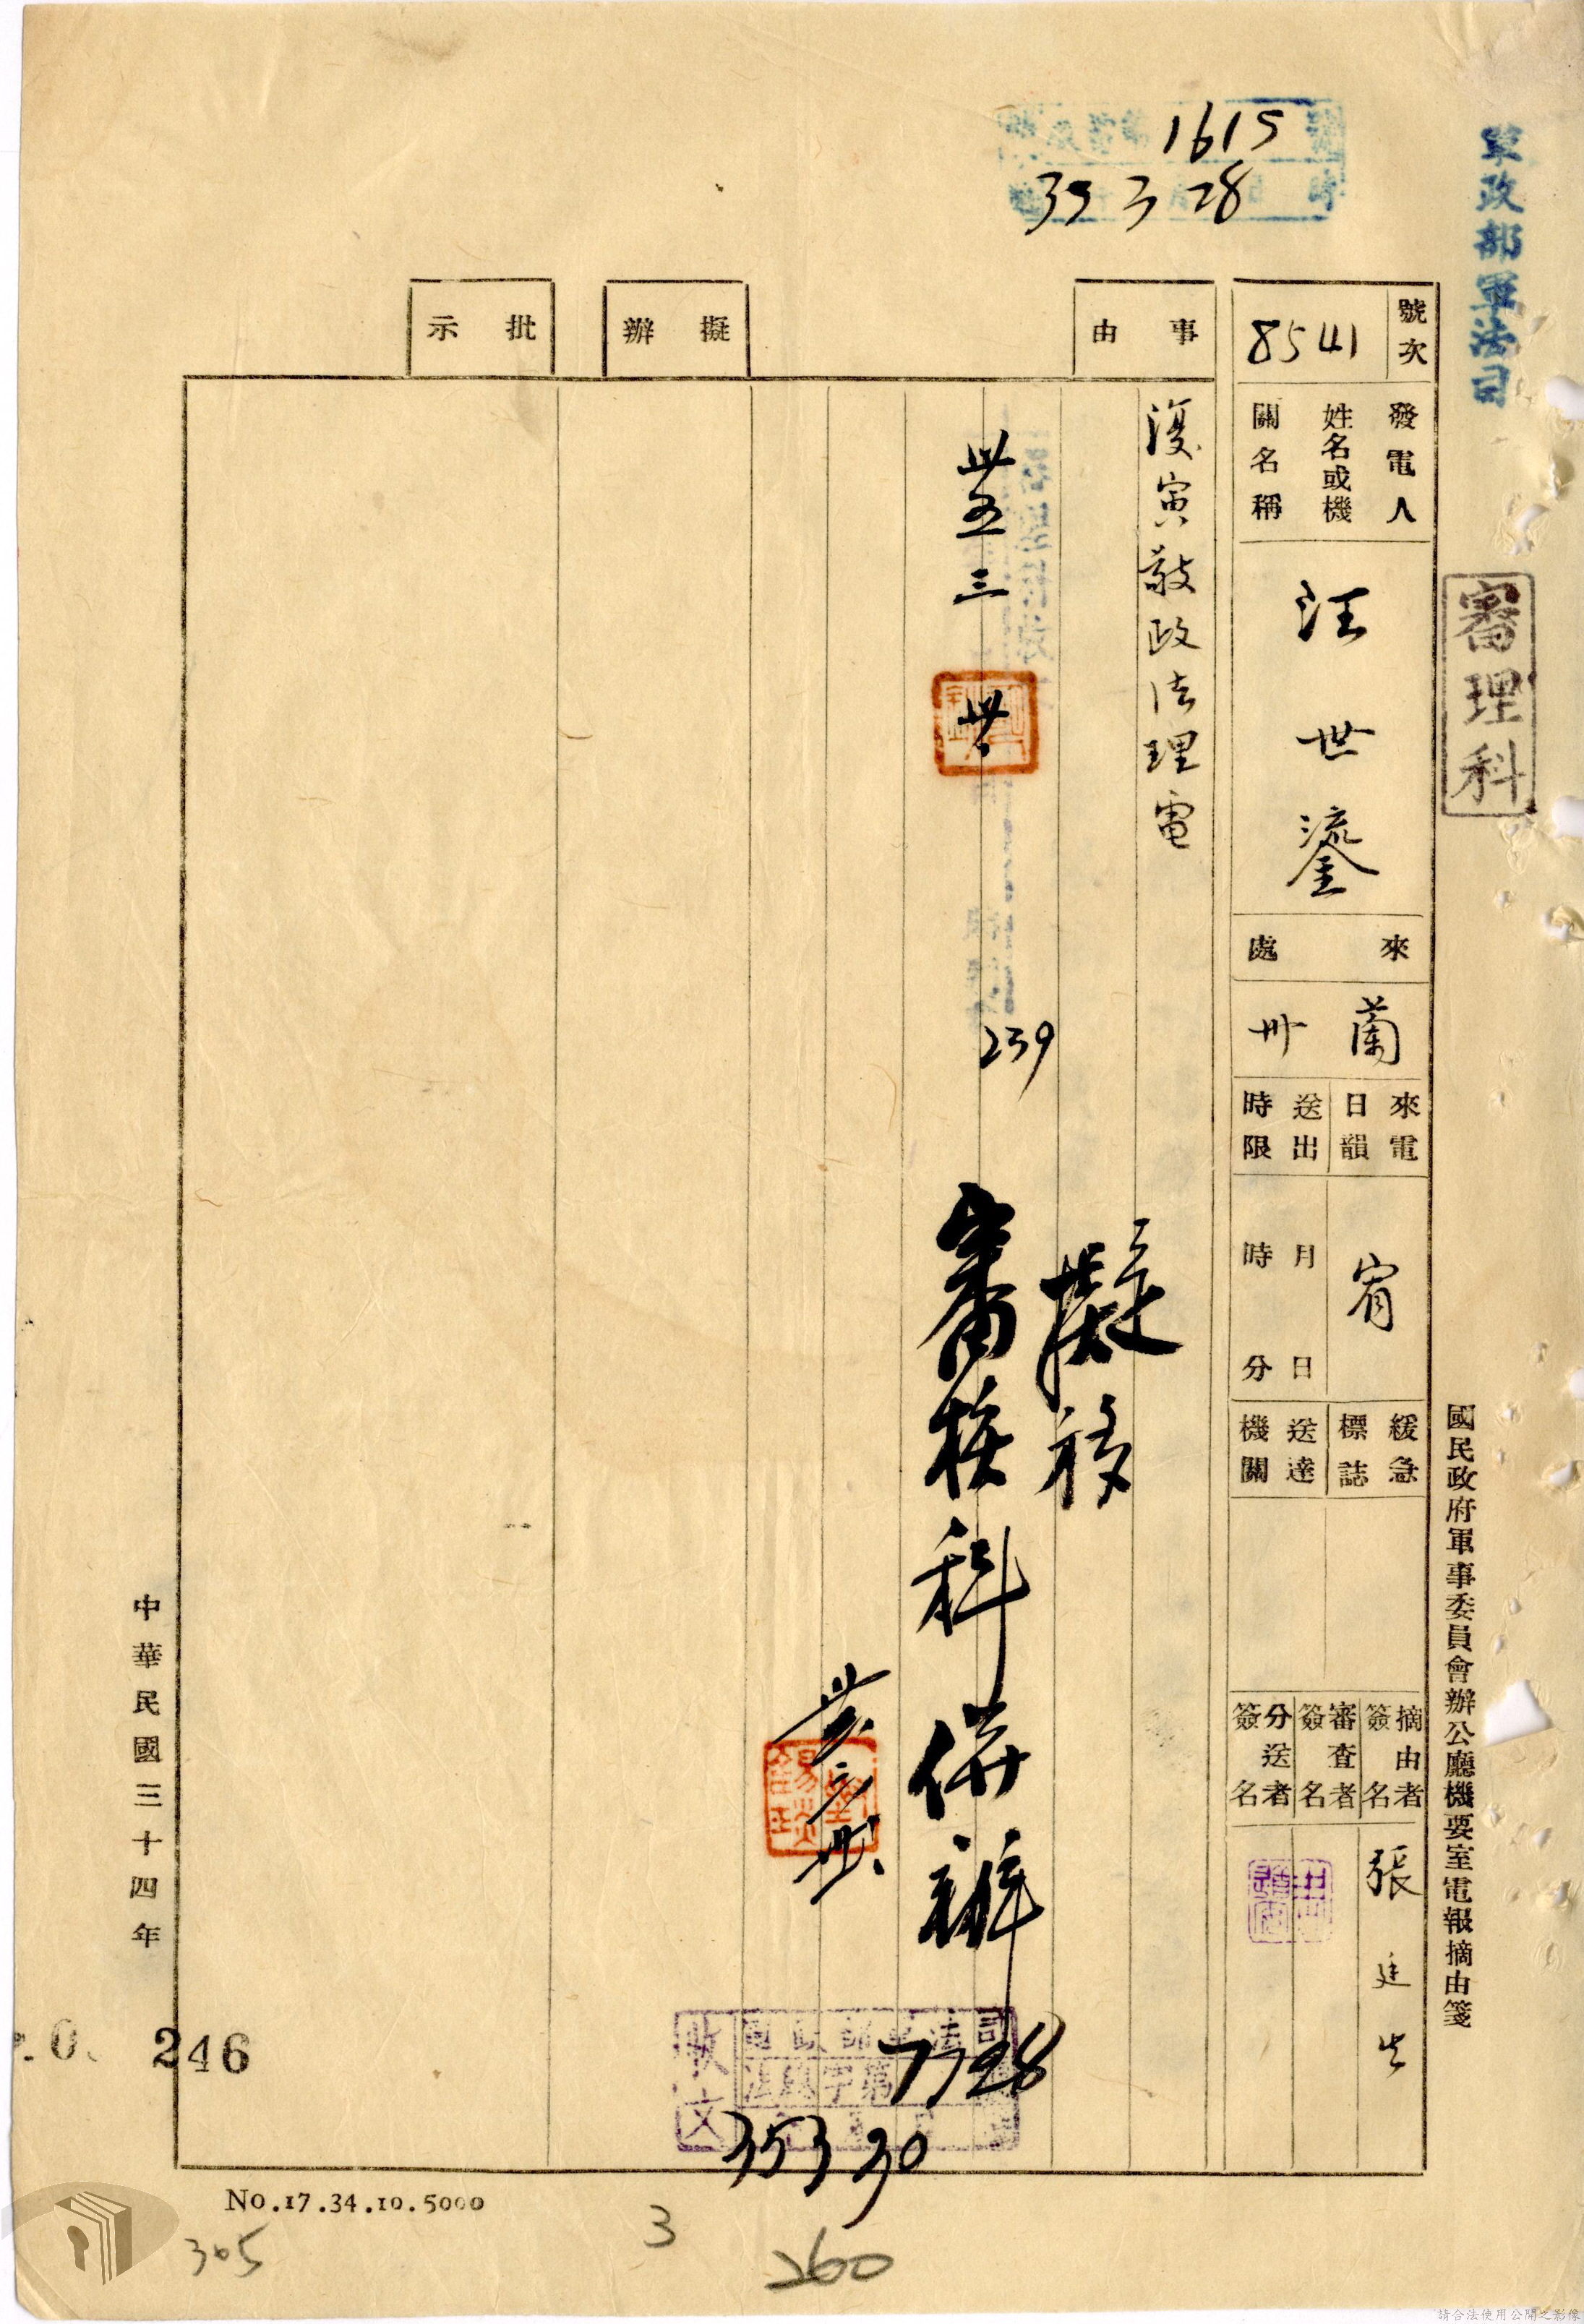 軍政部軍法司
審理科
國民政府軍事委員會辦公廳機要室電報摘由箋
1615
35 3 28
號次
8541
發電人
姓名或機
關名稱
汪世鎏
來處
蘭州
來電
日韻
宥
送出
時限
月日
時分
緩急
標誌
送達
機關
摘由者
簽名
張廷
審查者
簽名
分送者
簽名
事由
復寅敬政法理電
擬移
審核科併辦
卅五三
239
擬辦
批示
收文
7728
35 3 30
中華民國三十四年
246
No.17.34.10.5000
305
3
260
請合法使用公開之影像